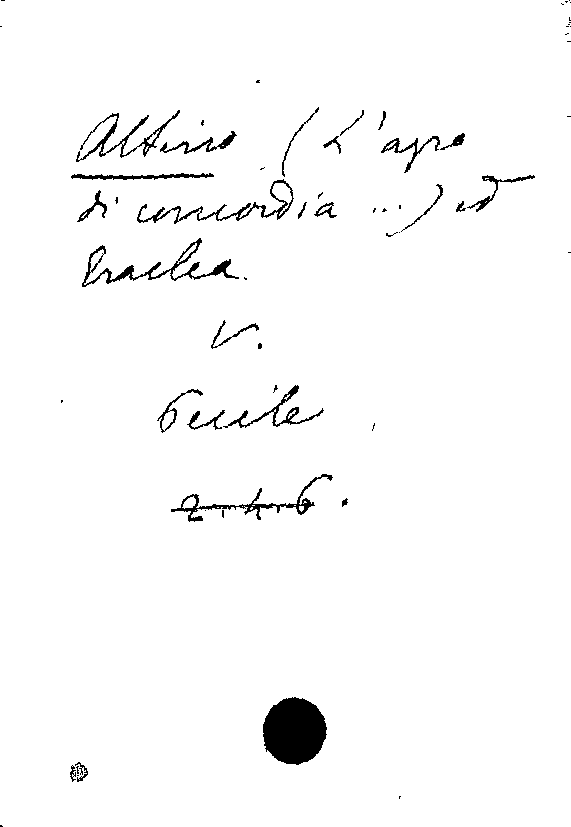 Altino (L'agro
di concordia ...) ed
Eraclea.
V.
2.4.6.